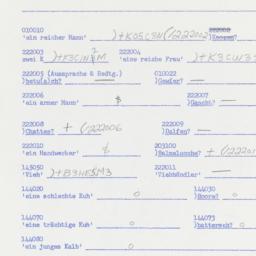 010010 222002
'ein reicher Mann' )+K05C3N(/222002 )Knopps?
222003 222004
zwei K )+K3C1N2M 'eine reiche Frau' )+K3CW3
222005 (Aussprache & Bedtg.) 010022
)betu(a)ch? — )Gewder? —
222006 222007
'ein armer Mann' $ )Gancht? —
222008 222009
)Chattes? + (/222006 )Dalfen? —
222010 203100
'ein Handwerker' $ )Balmelouche? + (/22201
143050 222011
'Vieh' )+B3HE$M3 'Viehhändler' —
144020 144030
'eine schlechte Kuh' o )Boore? o
144070 144073
'eine trächtige Kuh' o )batterseh? o
144080
'ein junges Kalb' o